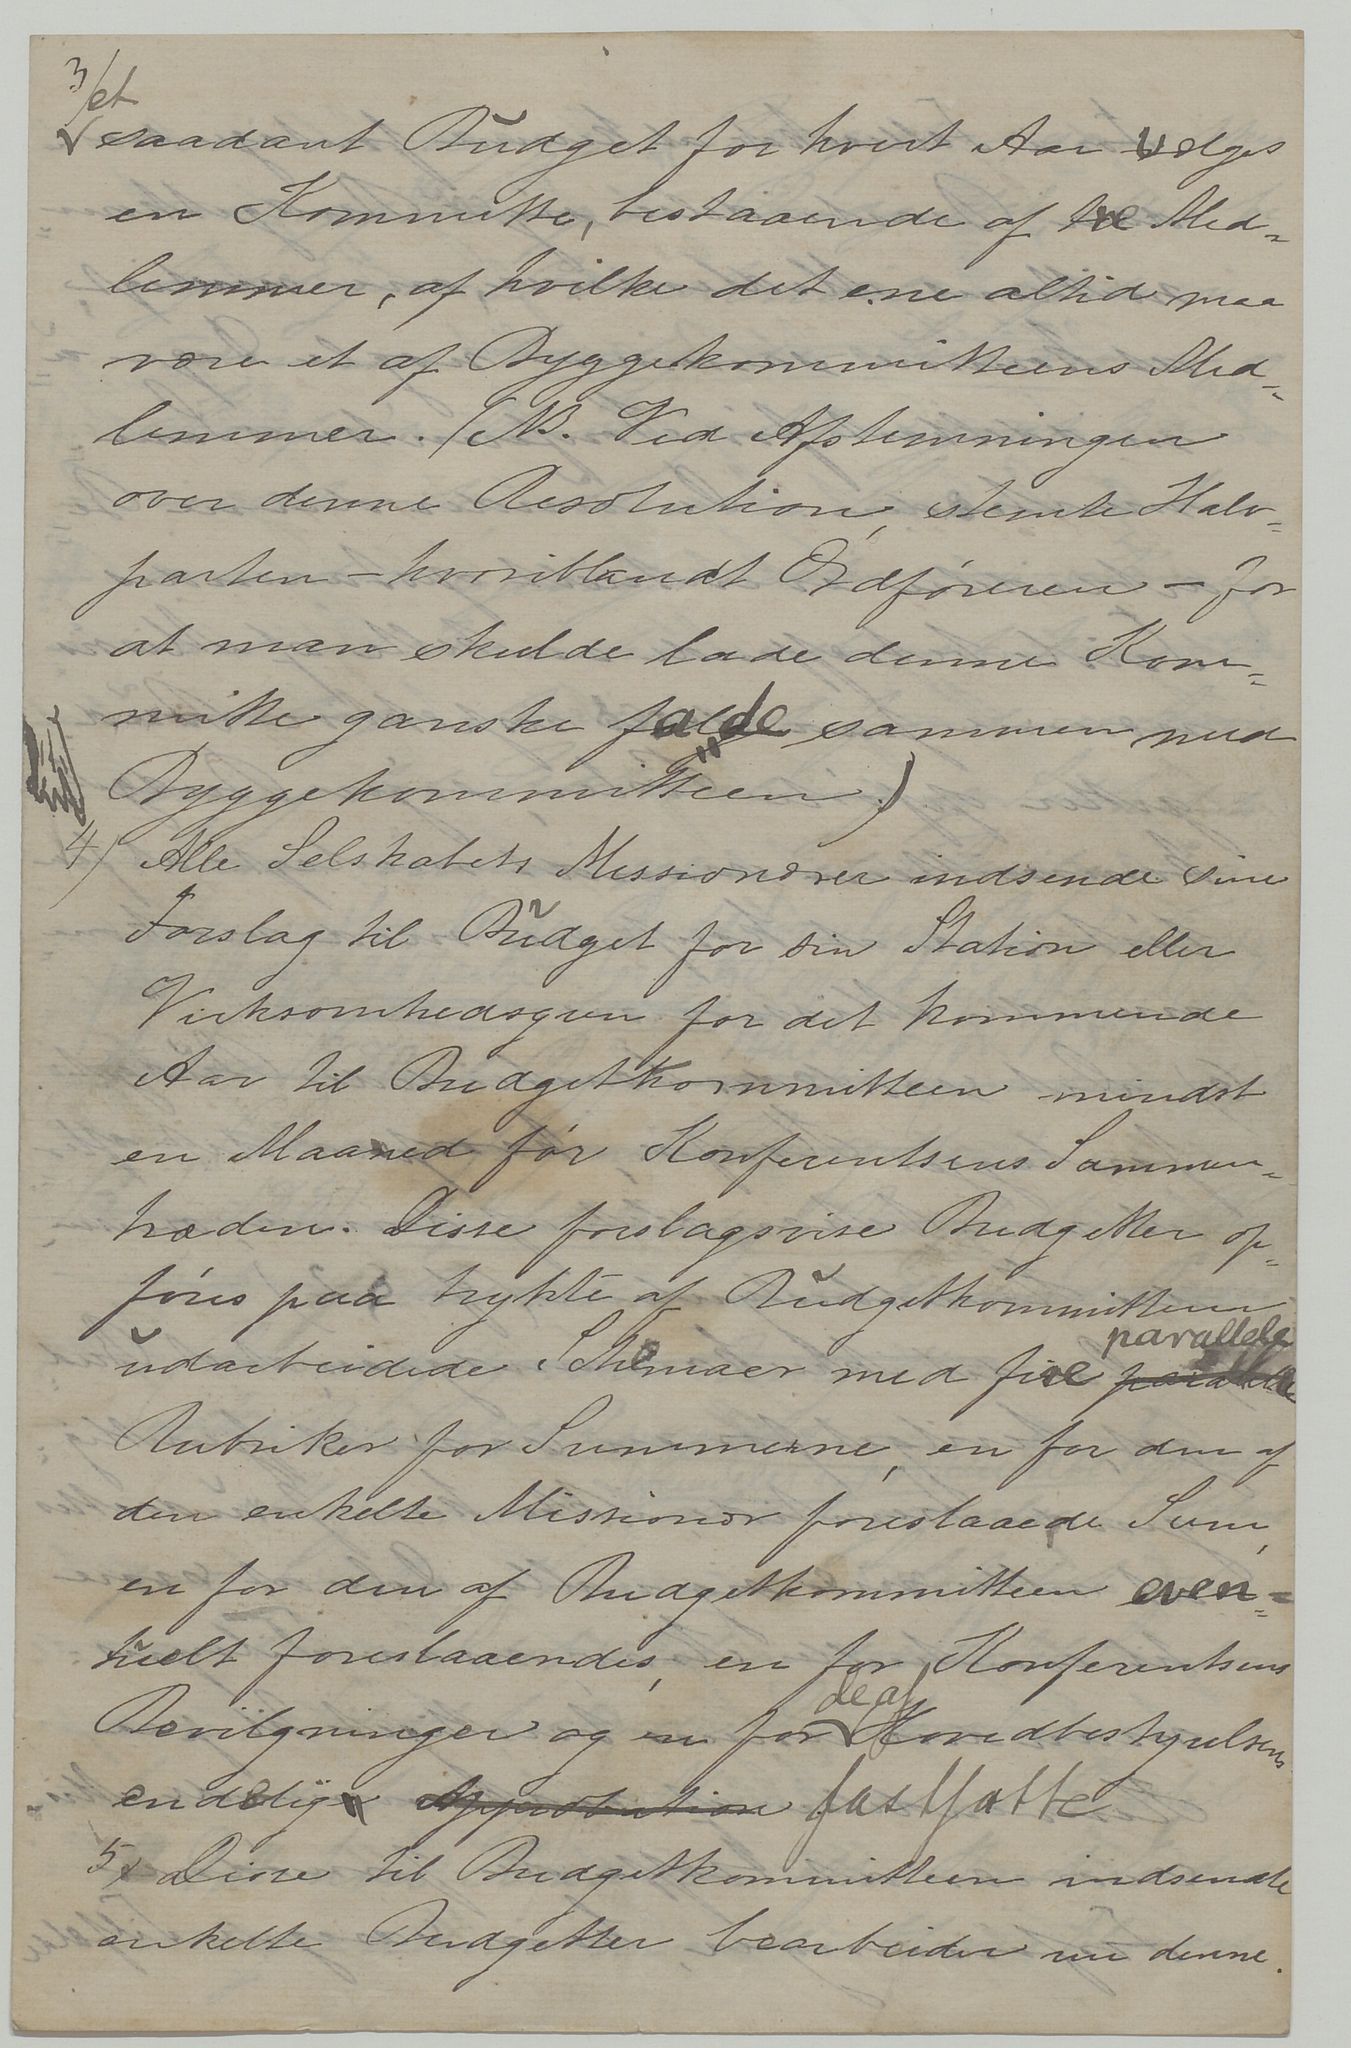 3/ et
saadant Budget for hvert Aar vælges
en Kommitte, bestaaende af tre Med-
lemmer, af hvilke det ene altid maa
være et af Byggekommitteens Med-
lemmer. (NB. Ved Afstemningen
over denne Resolution, stemte Halv-
parten – hvoriblandt Ordføreren – for
at man skulde lade denne Kom-
mitte ganske falde sammen med
Byggekommitteen.)
4) Alle Selskabets Missionærer indsende sine
Forslag til Budget for sin Station eller
Virksomhedsgren for det kommende
Aar til Budgetkommitteen mindst
en Maaned før Konferentsens Sammen-
træden. Disse forslagsvise Budgetter op-
føres paa trykte af Budgetkommitteen
parallele
udarbeidede Schemaer med fire parallelle
Rubriker for Summerne, en for den af
den enkelte Missionær foreslaaede Sum,
en for den af Budgetkommitteen even-
tuelt foreslaaendes, en for Konferentsens
de af
Bevilgninger og en for Hovedbestyrelsens
endelig Approbation fastsatte
5) Disse til Budgetkommitteen indsendte
enkelte Budgetter bearbeider nu denne.